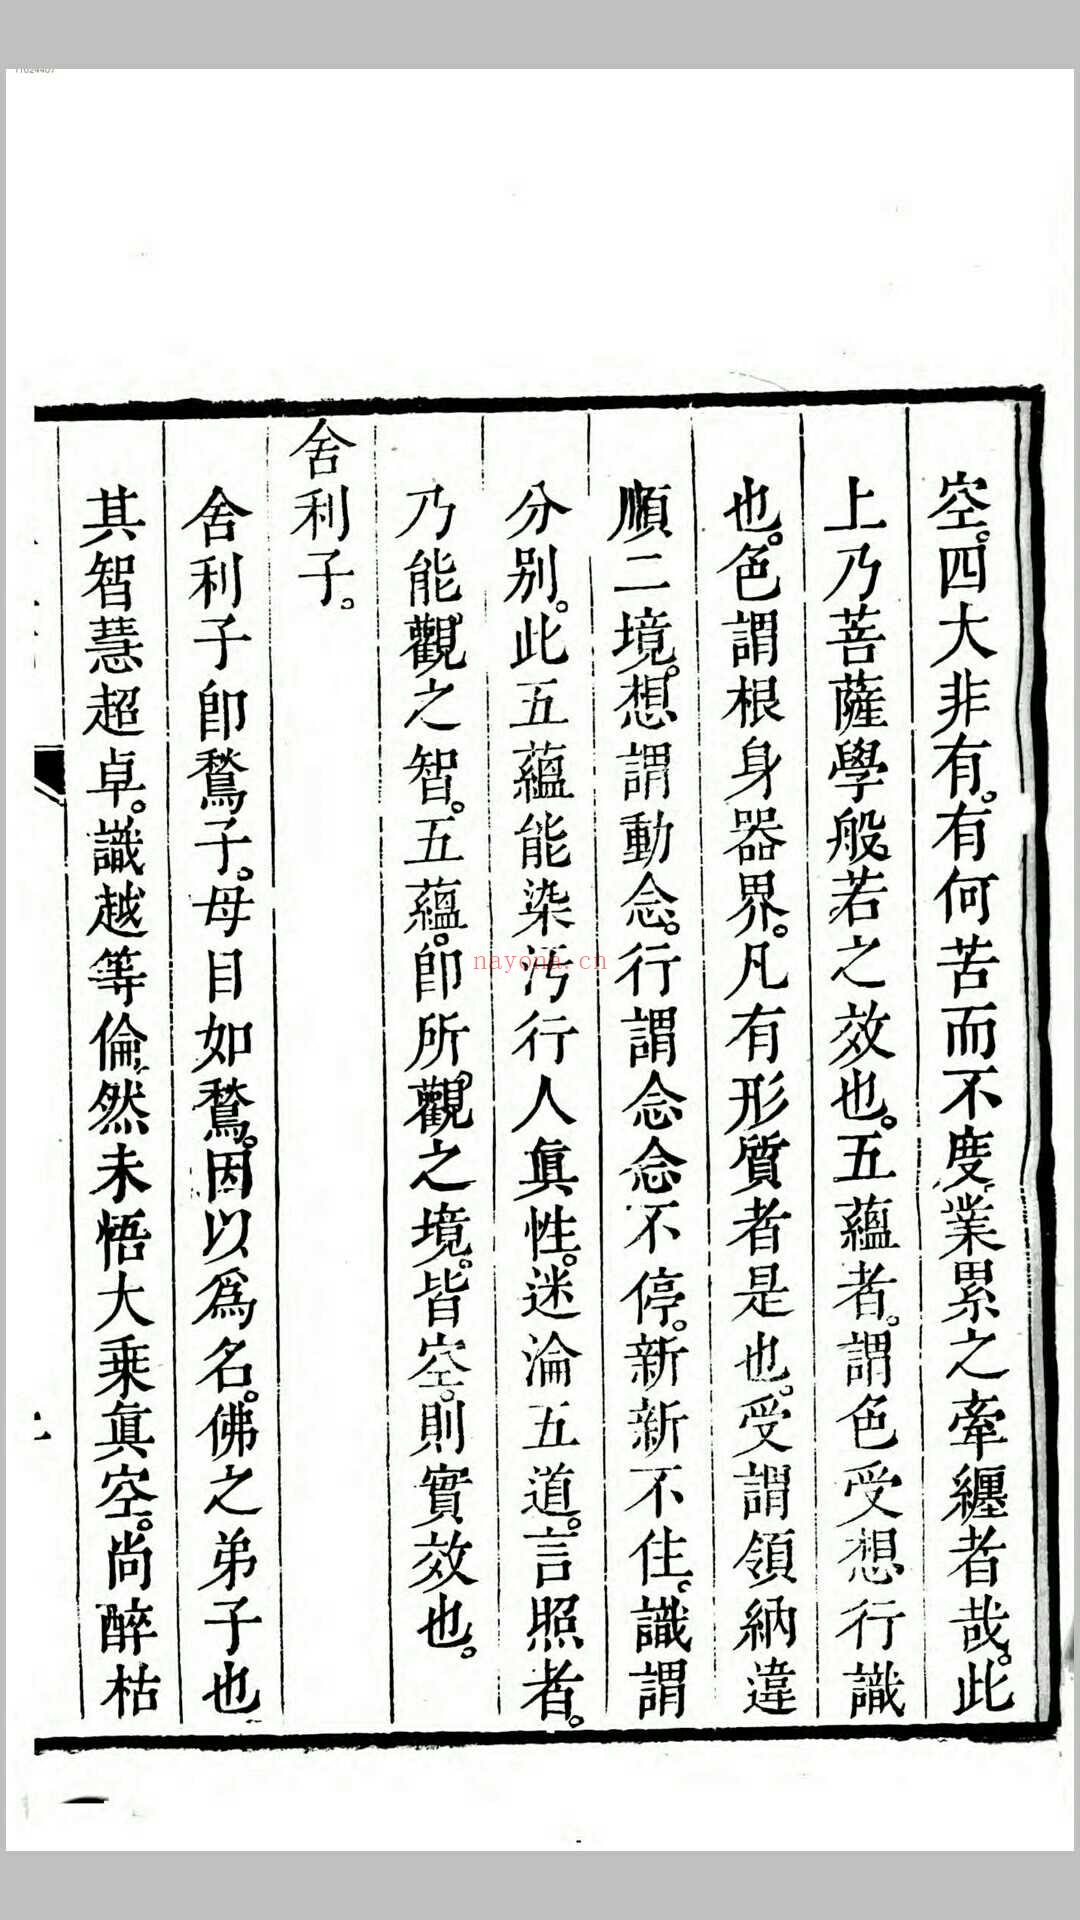 空。四大非有。有何苦而不度。業累之牽纏者哉。此
上乃菩薩學般若之效也。五蘊者。謂色受想行識
也。色謂根身器界。凡有形質者是也。受謂領納違
順二境。想謂動念。行謂念念不停。新新不住。識謂
分別。此五蘊能染汚行人眞性。迷淪五道。言照者。
乃能觀之智。五蘊。卽所觀之境。皆空。則實效也。
舍利子。
舍利子卽鶖子。母目如鶖。因以爲名。佛之弟子也
其智慧超卓。識越等倫。然未悟大乘眞空。尚醉枯
nayona.cn
11024407